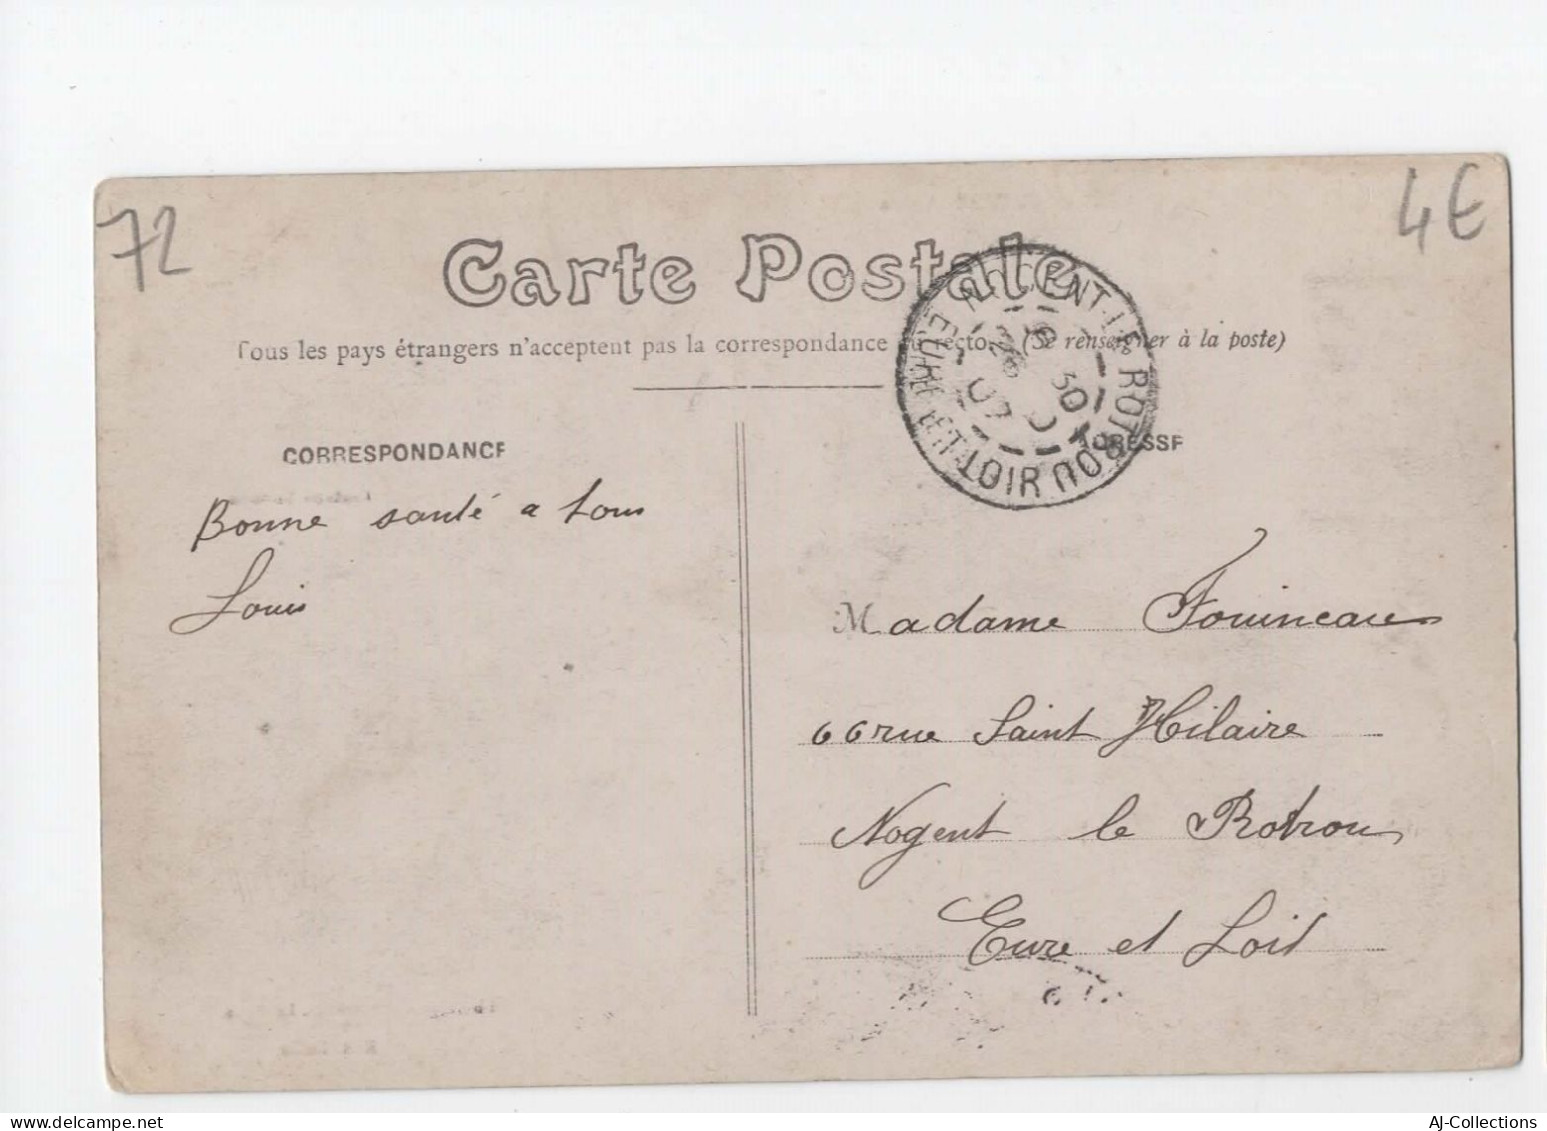 72
4€
Carte Postale
Tous les pays étrangers n'acceptent pas la correspondance au recto. (Se renseigner à la poste)
NOGENT-LE-ROTROU
EURE-ET-LOIR
CORRESPONDANCE
ADRESSE
Bonne santé a tous
Louis
Madame Fouineau
66 rue Saint Hilaire
Nogent le Rotrou
Eure et Loir
AJ-Collections